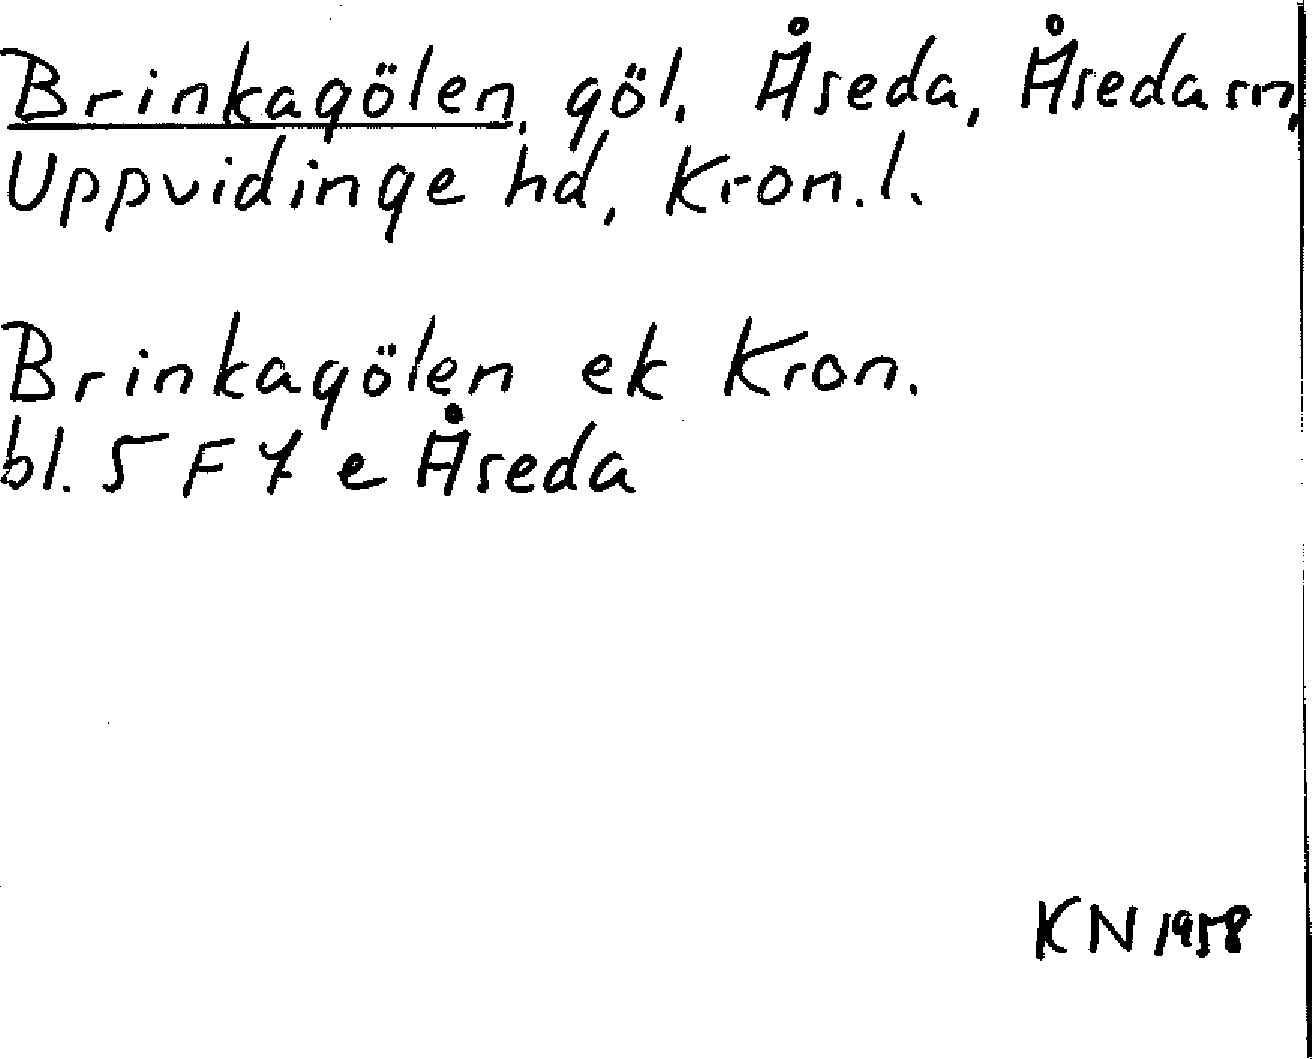 Brinkagölen, göl, Åseda, Åseda sn,
Uppvidinge hd, Kron. l.
Brinkagölen ek Kron.
bl. 5 F 7 e Åseda
KN 1958